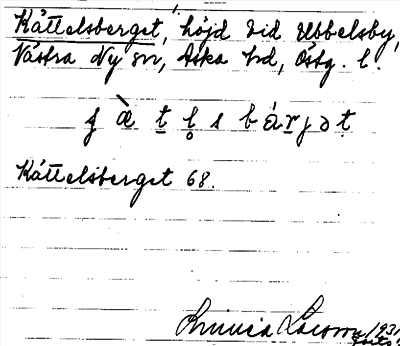 Kättelsberget, höjd vid Ubbelsby,
Västra Ny sn, Aska hd, Östg. l.
ʒ æ̀ t l̥ s b á r j ə t
Kättelsberget 68.
1931